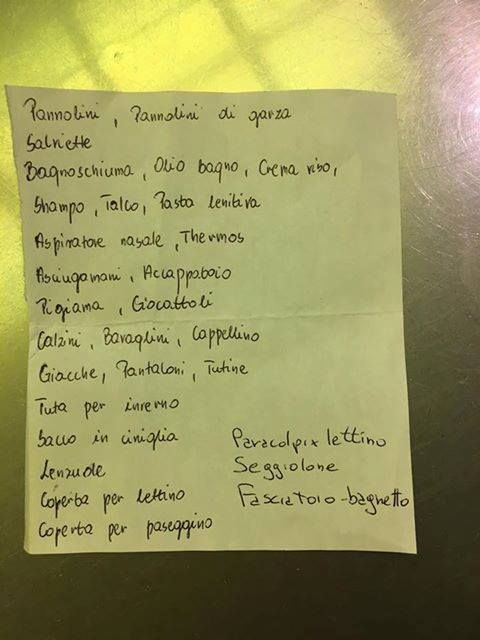 Pannolini, Pannolini di garza
Salviette
Bagnoschiuma, Olio bagno, Crema viso,
Shampo, Talco, Pasta lenitiva
Aspiratore nasale, Thermos
Asciugamani, Accappatoio
Pigiama, Giocattoli
Calzini, Bavaglini, Cappellino
Giacche, Pantaloni, Tutine
Tuta per inverno
Sacco in ciniglia
Lenzuole
Coperta per lettino
Coperta per paseggino
Paracolpix lettino
Seggiolone
Fasciatoio-bagnetto